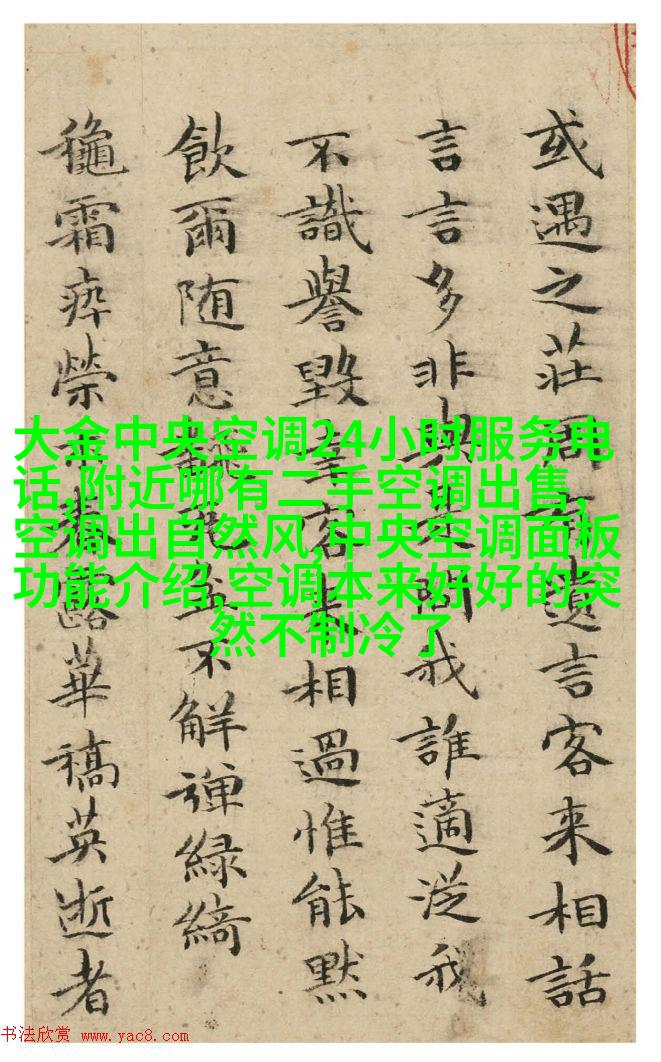 或遇之莊周
遺言客来相話
言言多非
問我誰適從我
不識譽毀
相過惟能黙
飲爾随意
不解弾緑綺
龝霜瘁榮
露華稿英逝者
大金中央空调24小时服务电
话,附近哪有二手空调出售,
空调出自然风,中央空调面板
功能介绍,空调本来好好的突
然不制冷了
书法欣赏 www.yac8.com